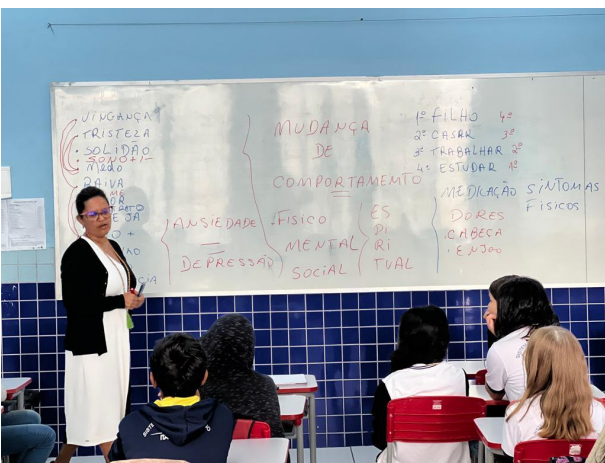 VINGANÇA
TRISTEZA
SOLIDÃO
SONO+/-
MEDO
RAIVA
ANSIEDADE
DEPRESSÃO
MUDANÇA
DE
COMPORTAMENTO
.FISICO
MENTAL
SOCIAL
ES
PI
RI
TUAL
1º FILHO 4º
2º CASAR 3º
3º TRABALHAR 2º
4º ESTUDAR 1º
MEDICAÇÃO SINTOMAS
FISICOS
DORES
.CABEÇA
.ENJOO